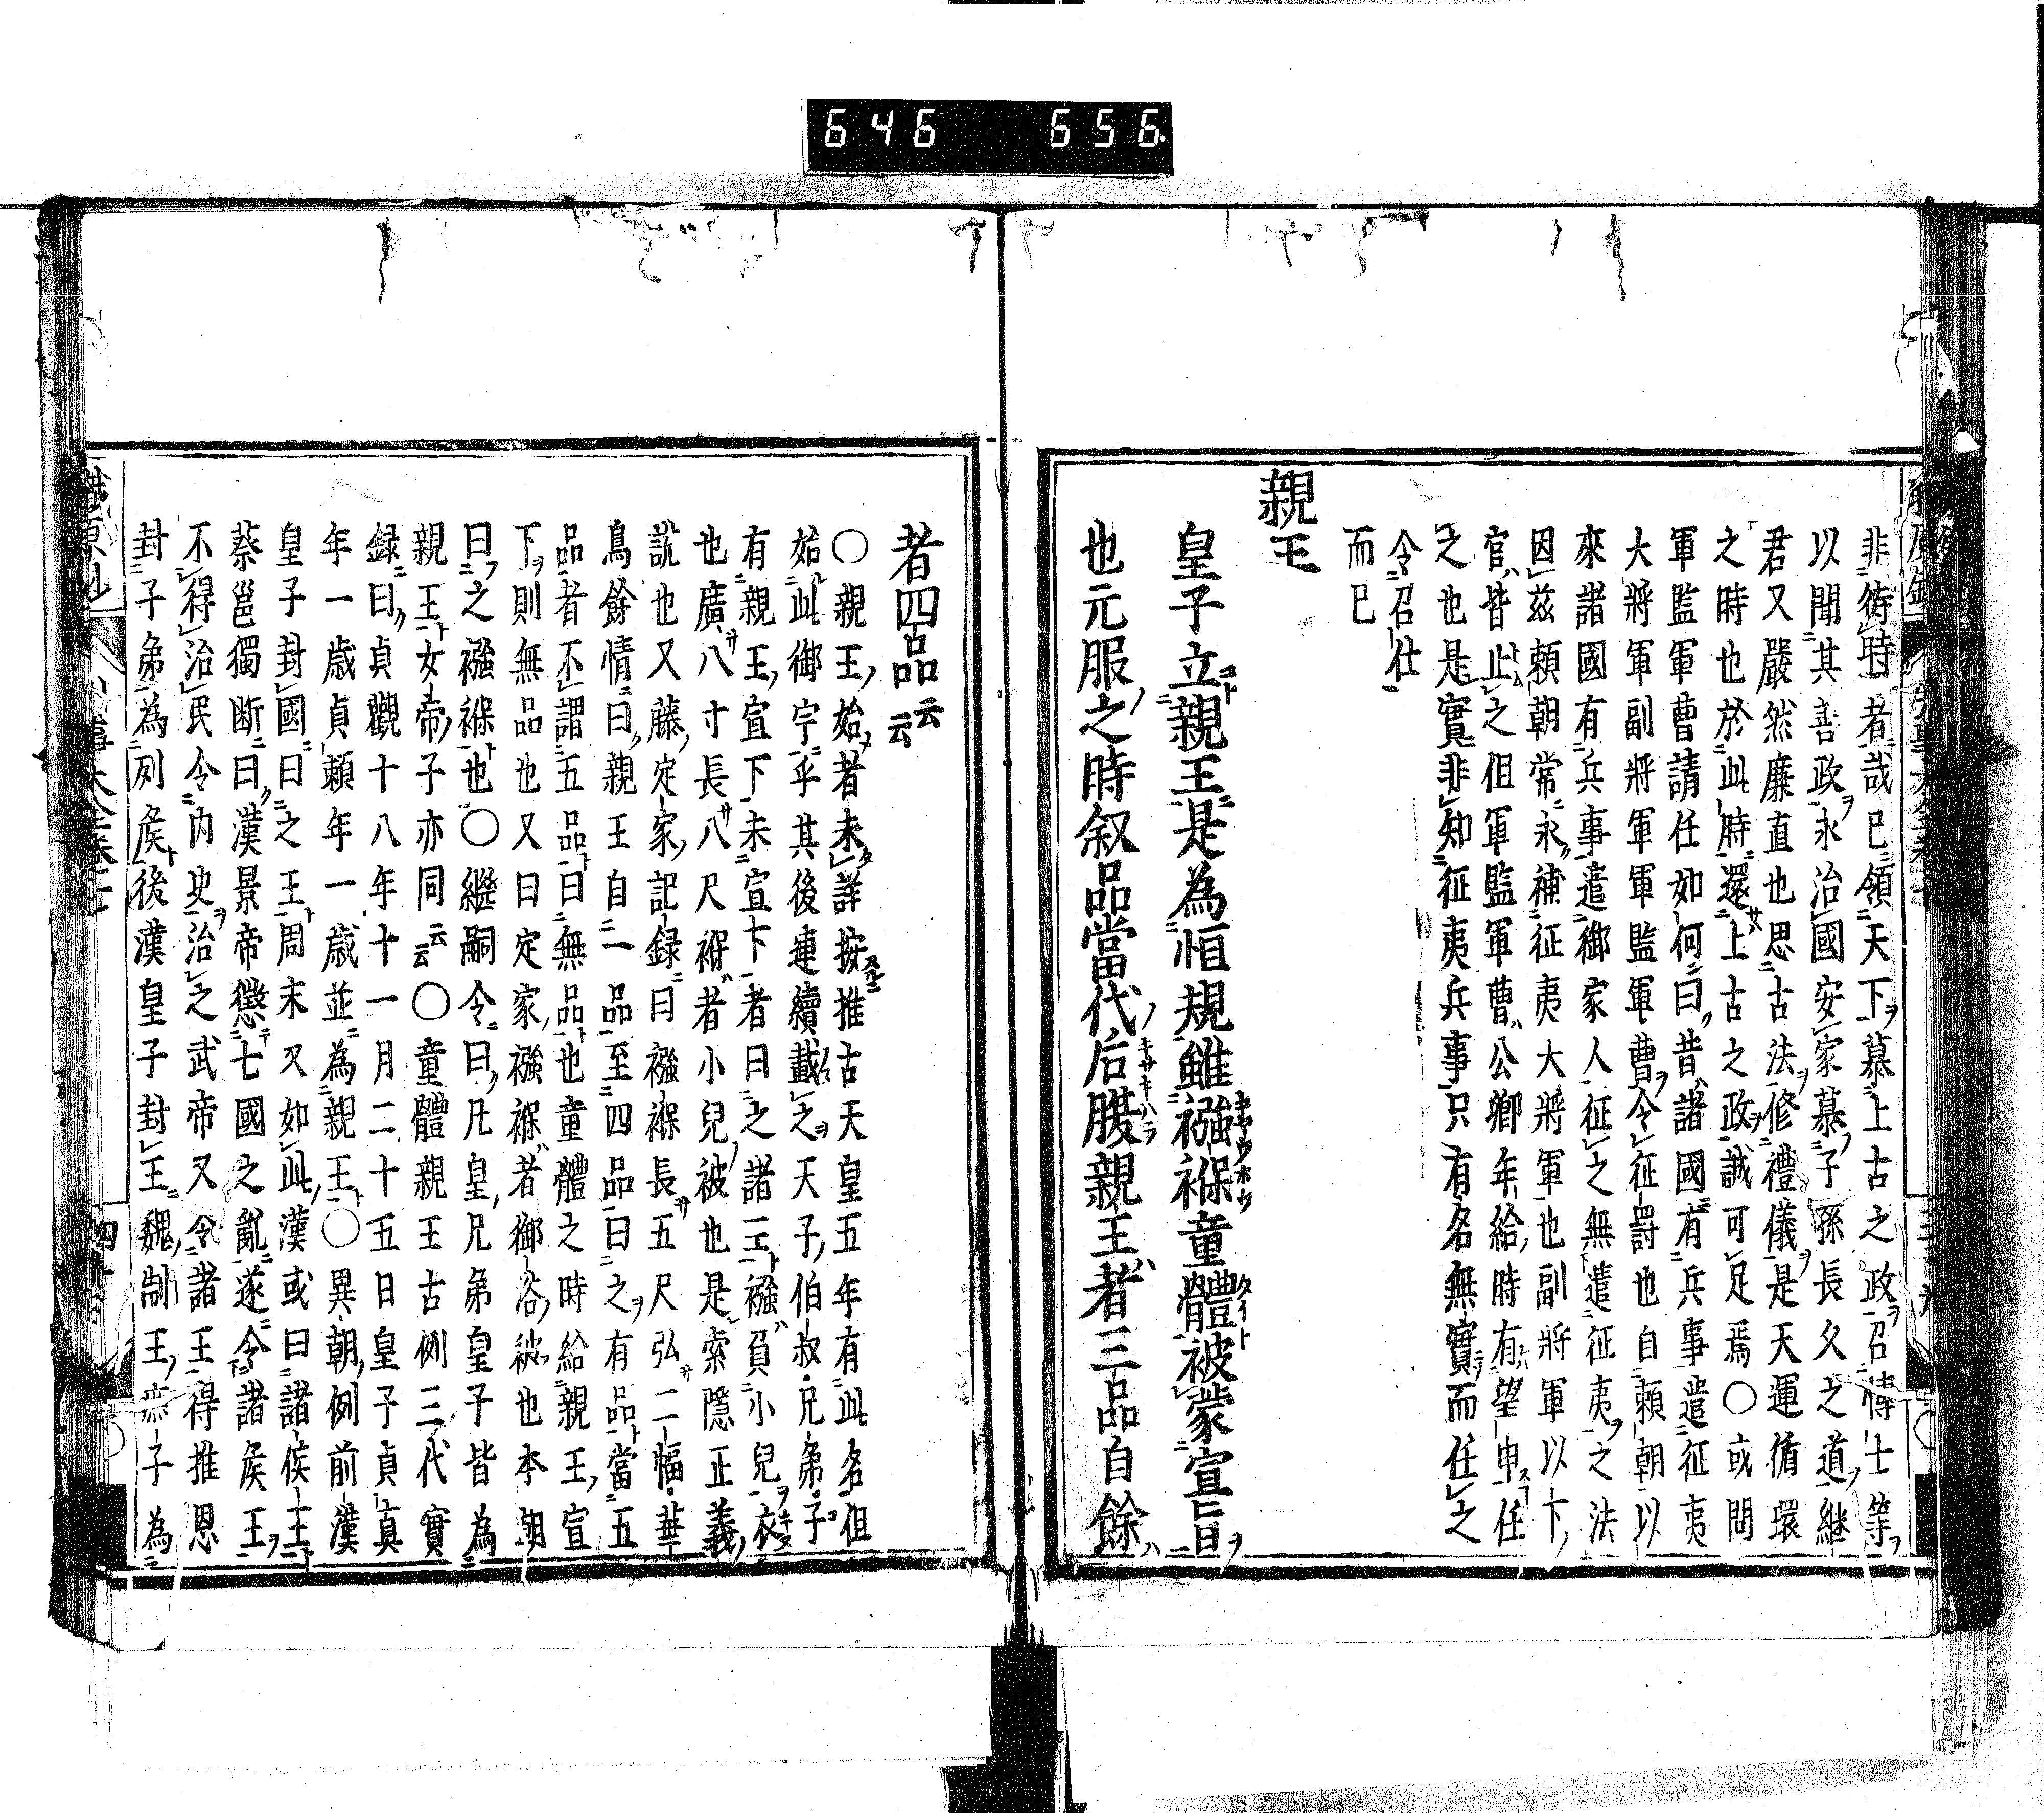 646 656
非待時者哉已領天下慕上古之政召侍士等
以聞其善政永治國安家慕子孫長久之道継
君又嚴然廉直也思古法修禮儀是天運循環
之時也於此時還上古之政誠可足焉〇或問
軍監軍曹請任如何曰昔諸國有兵事遣征夷
大將軍副將軍軍監軍曹令征罸也自頼朝以
來諸國有兵事遣御家人征之無遣征夷之法
因茲頼朝常永補征夷大將軍也副將軍以下
官皆止之但軍監軍曹公卿年給時有望申任
之也是實非知征夷兵事只有名無實而任之
令召仕
而已
親王
皇子立親王是為恒規雖襁褓童體被蒙宣旨
也元服之時叙品當代后腹親王者三品自餘
者四品云云
〇親王始者未詳按推古天皇五年有此名但
始此御宇乎其後連續載之天子伯叔兄弟子
有親王宣下未宣下者曰之諸王襁負小兒衣
也廣八寸長八尺褓者小兒被也是索隱正義
説也又藤定家記録曰襁褓長五尺弘二幅
鳥餘情曰親王自一品至四品曰之有品當五
品者不謂五品曰無品也童體之時給親王宣
下則無品也又曰定家襁褓者御浴也本朝
曰之襁褓也〇繼嗣令曰凡皇兄弟皇子皆為
親王女帝子亦同云云〇童體親王古例三代實
録曰貞觀十八年十一月二十五日皇子貞真
年一歳貞頼年一歳並為親王〇異朝例前漢
皇子封國曰之王周末又如此漢或曰諸侯王
蔡邕獨断曰漢景帝懲七國之亂遂令諸侯王
不得治民令内史治之武帝又令諸王得推恩
封子弟為列侯後漢皇子封王魏制王子為
職原抄